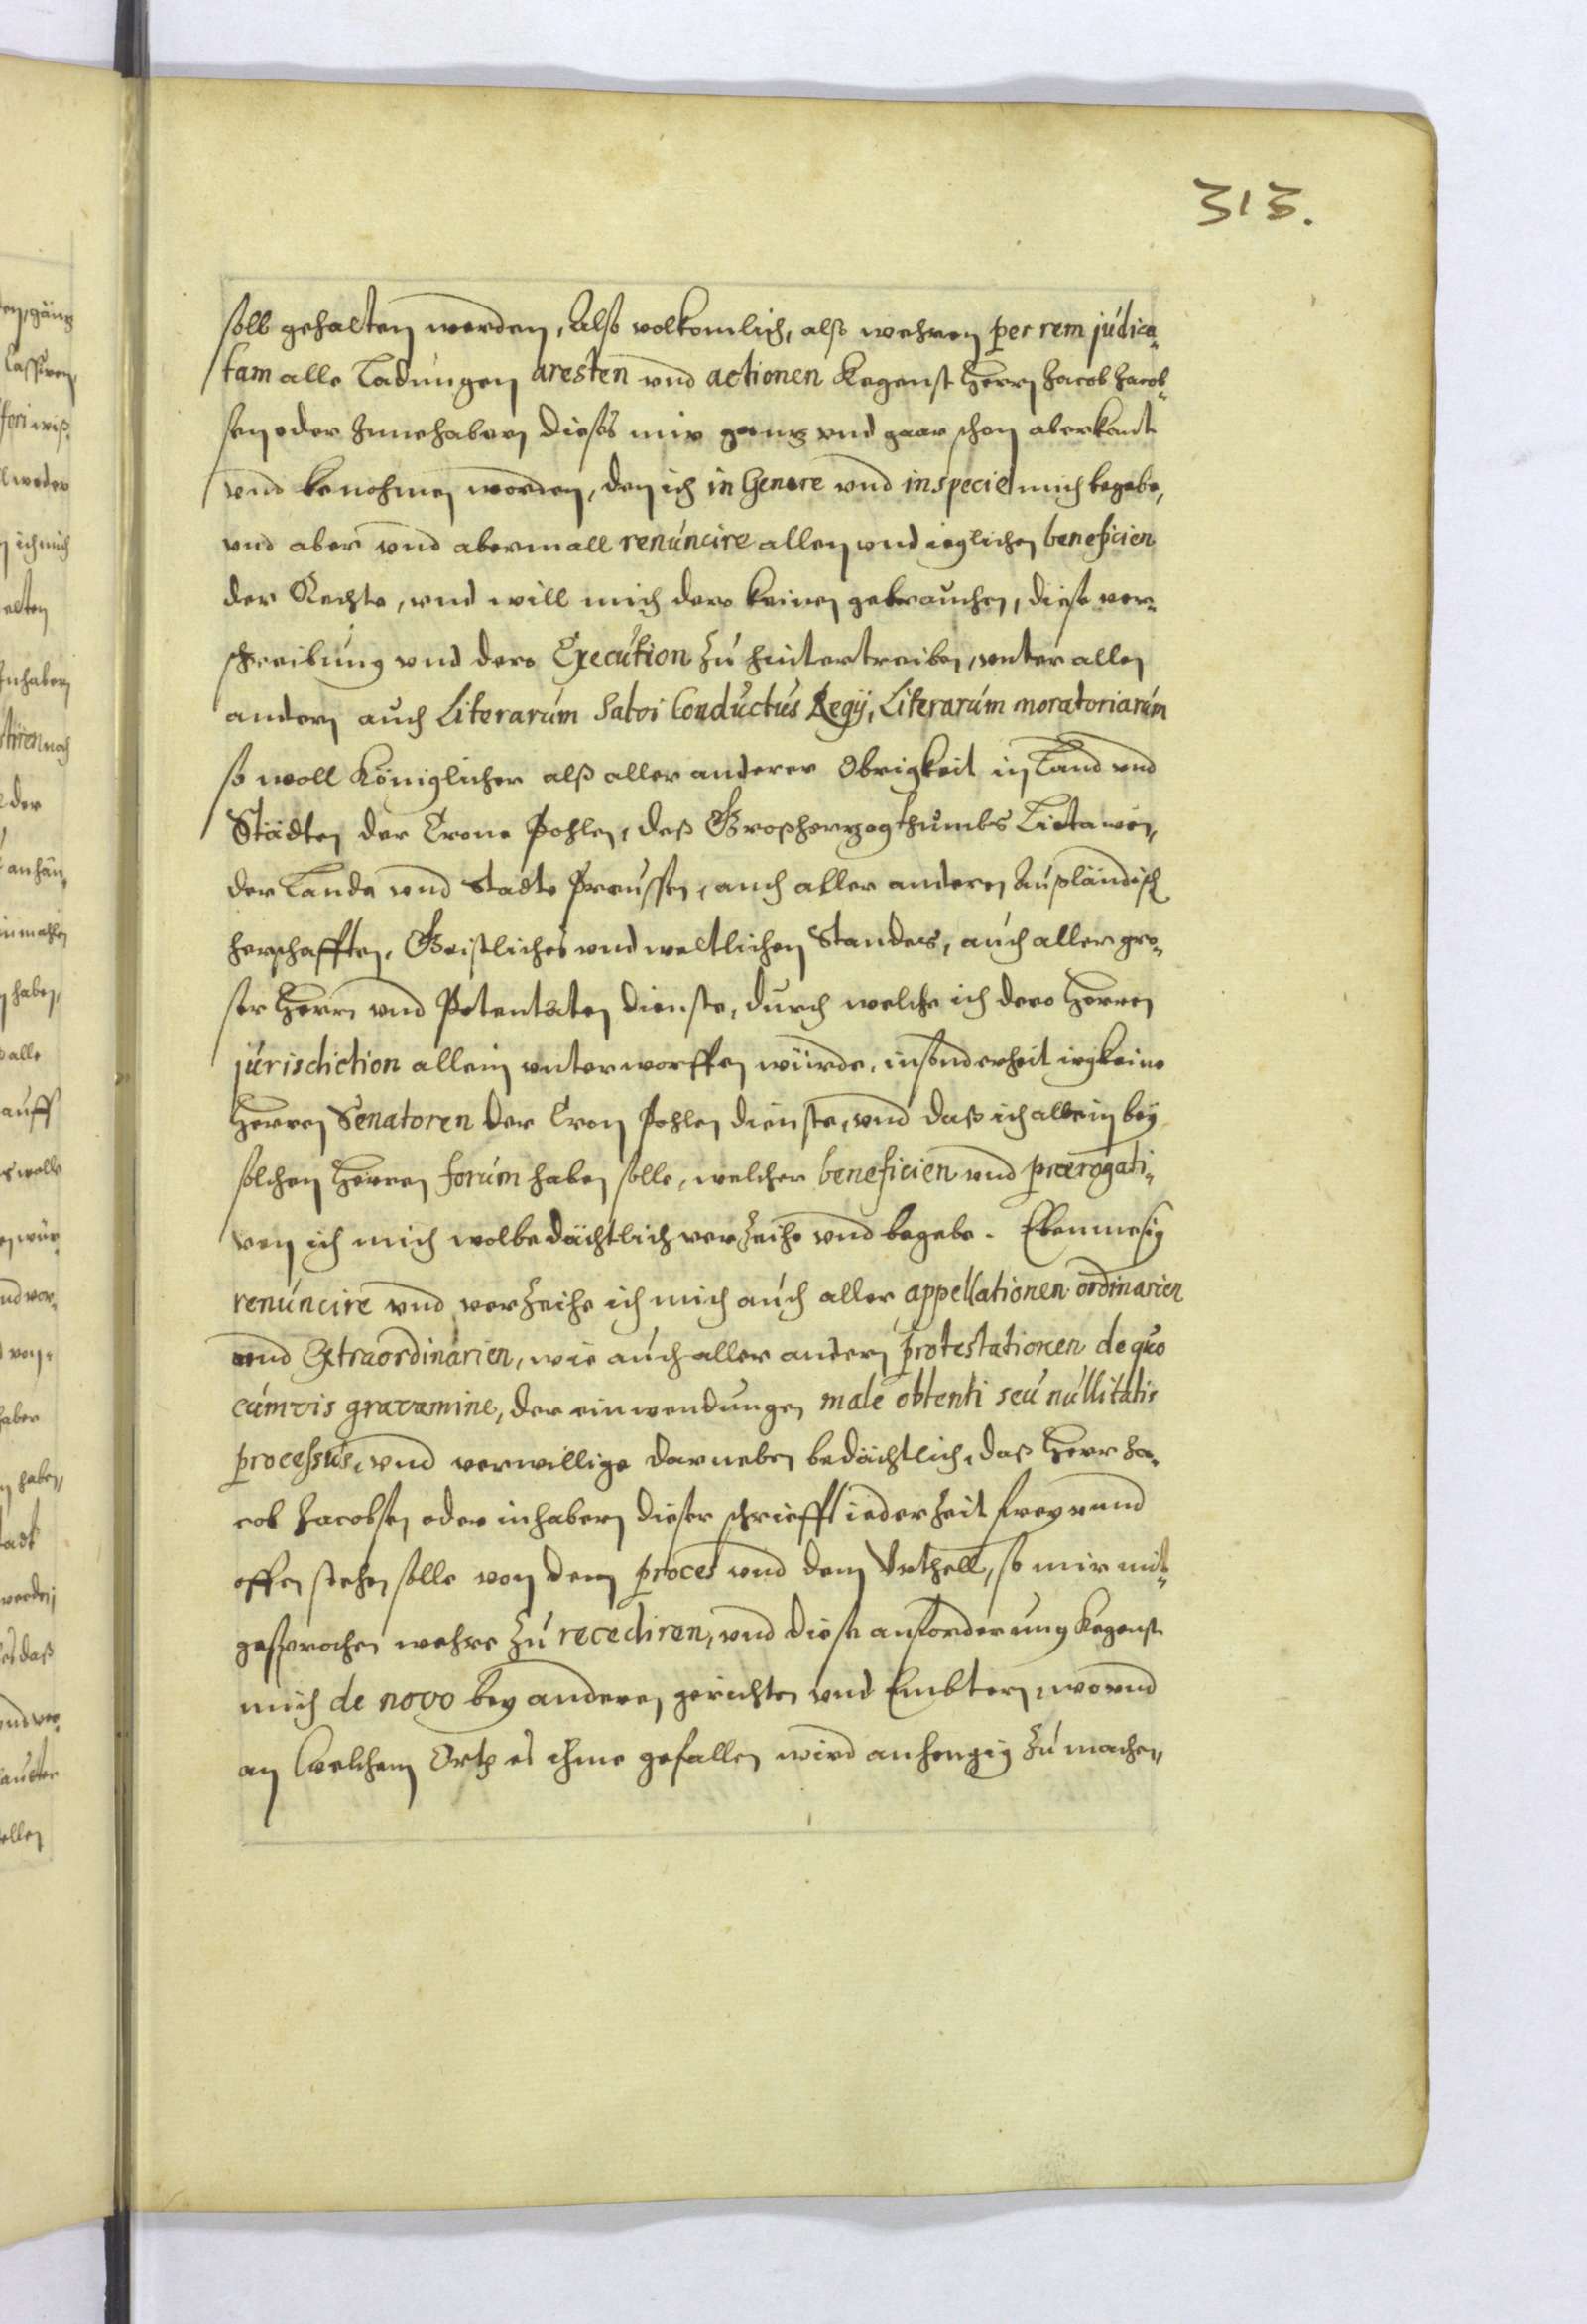 313.
soll gehalten werden, Also volkomlich, alß wehren per rem judica-
tam alle Ladungen aresten vnd actionen kegenst Herrn Jacob Jacob-
sen oder Innehabern dieses mir gantz vnd gaar schon aberkant
vnd benohmen worden, den ich in Genere vnd in specie mich begebe,
vnd aber vnd abermall renuncire allen vnd ieglichen beneficien
der Rechte, vnd will mich dero keinen gebrauchen, diese ver-
schreibung vnd dero Execution zu hintertreiben, vnter allen
andern auch Literarum salvi Conductus Regij, Literarum moratoriarum
so woll Königlicher alß aller anderer Obrigkeit in Land vnd
Städten der Crone Pohlen, deß Großhertzogthumbs Littawen,
der Lande vnd Stadte Preussen, auch aller anderen Außländisch
herschafften, Geistliches vnd weltlichen Standes, auch aller gro-
ser Herrn vnd Potentaten dienste, durch welche ich dero Herren
jurisdiction allein vnterworffen würde, insonderheit irgkeine
Herren Senatoren der Cron Pohlen dienste, vnd daß ich allein bey
solchen Herren forum haben solle, welcher beneficien vnd prærogati-
ven ich mich wolbedächtlich verzeihe vnd begebe. Ebenmesig
renuncire vnd verzeihe ich mich auch aller appellationen ordinarien
vnd Extraordinarien, wie auch aller andern protestationen de quo
cumvis gravamine, der einwendungen male obtenti seu nullitatis
processus, vnd verwillige darneben bedächtlich, daß Herr Ja-
cob Jacobsen oder inhabern dieser schriefft iederzeit frey vnnd
offen stehen solle von dem proces vnd dem Vrthell, so mir mit-
gesprochen wehre zu recediren, vnd diese anforderung kegenst
mich de novo bey anderen gerichten vnd Embtern, wo vnd
an welchem Ortz es ihme gefallen wird anhengig zu machen,